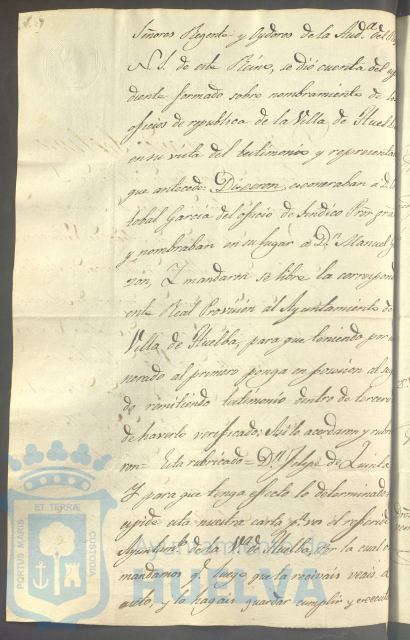 Señores Regente y Oydores de la Aud.ª del
N. S. de este Reino, se dió cuenta del
diente formado sobre nombramiento de
oficios de republica de la Villa de Huel
en su vista del testimonio y represent
que antecede: Dixeron esoneraban a D.
tobal Garcia del oficio de Sindico Pror gral
y nombraban en su lugar a D.n Manuel
zon, Y mandaron se libre la correspond
ente Real Provision al Ayuntamiento de
Villa de Huelba, para que teniendo por
nerado al primero ponga en posesion al seg
do remitiendo testimonio dentro de tercero
de haverlo verificado: Asi lo acordaron y rubri
ron= Esta rubricado= D.n Felipe de Quinta
Y para que tenga efecto lo determinado
espide esta nuestra carta p.r vos el referido
Ayuntam.to de la V.ª de Huelba, por la cual
mandamos q.e luego que la recivais veais
auto, y lo hagais guardar cumplir y execu
PORTUS MARIS ET TERRÆ CUSTODIA
Ayuntamiento de
HUELVA